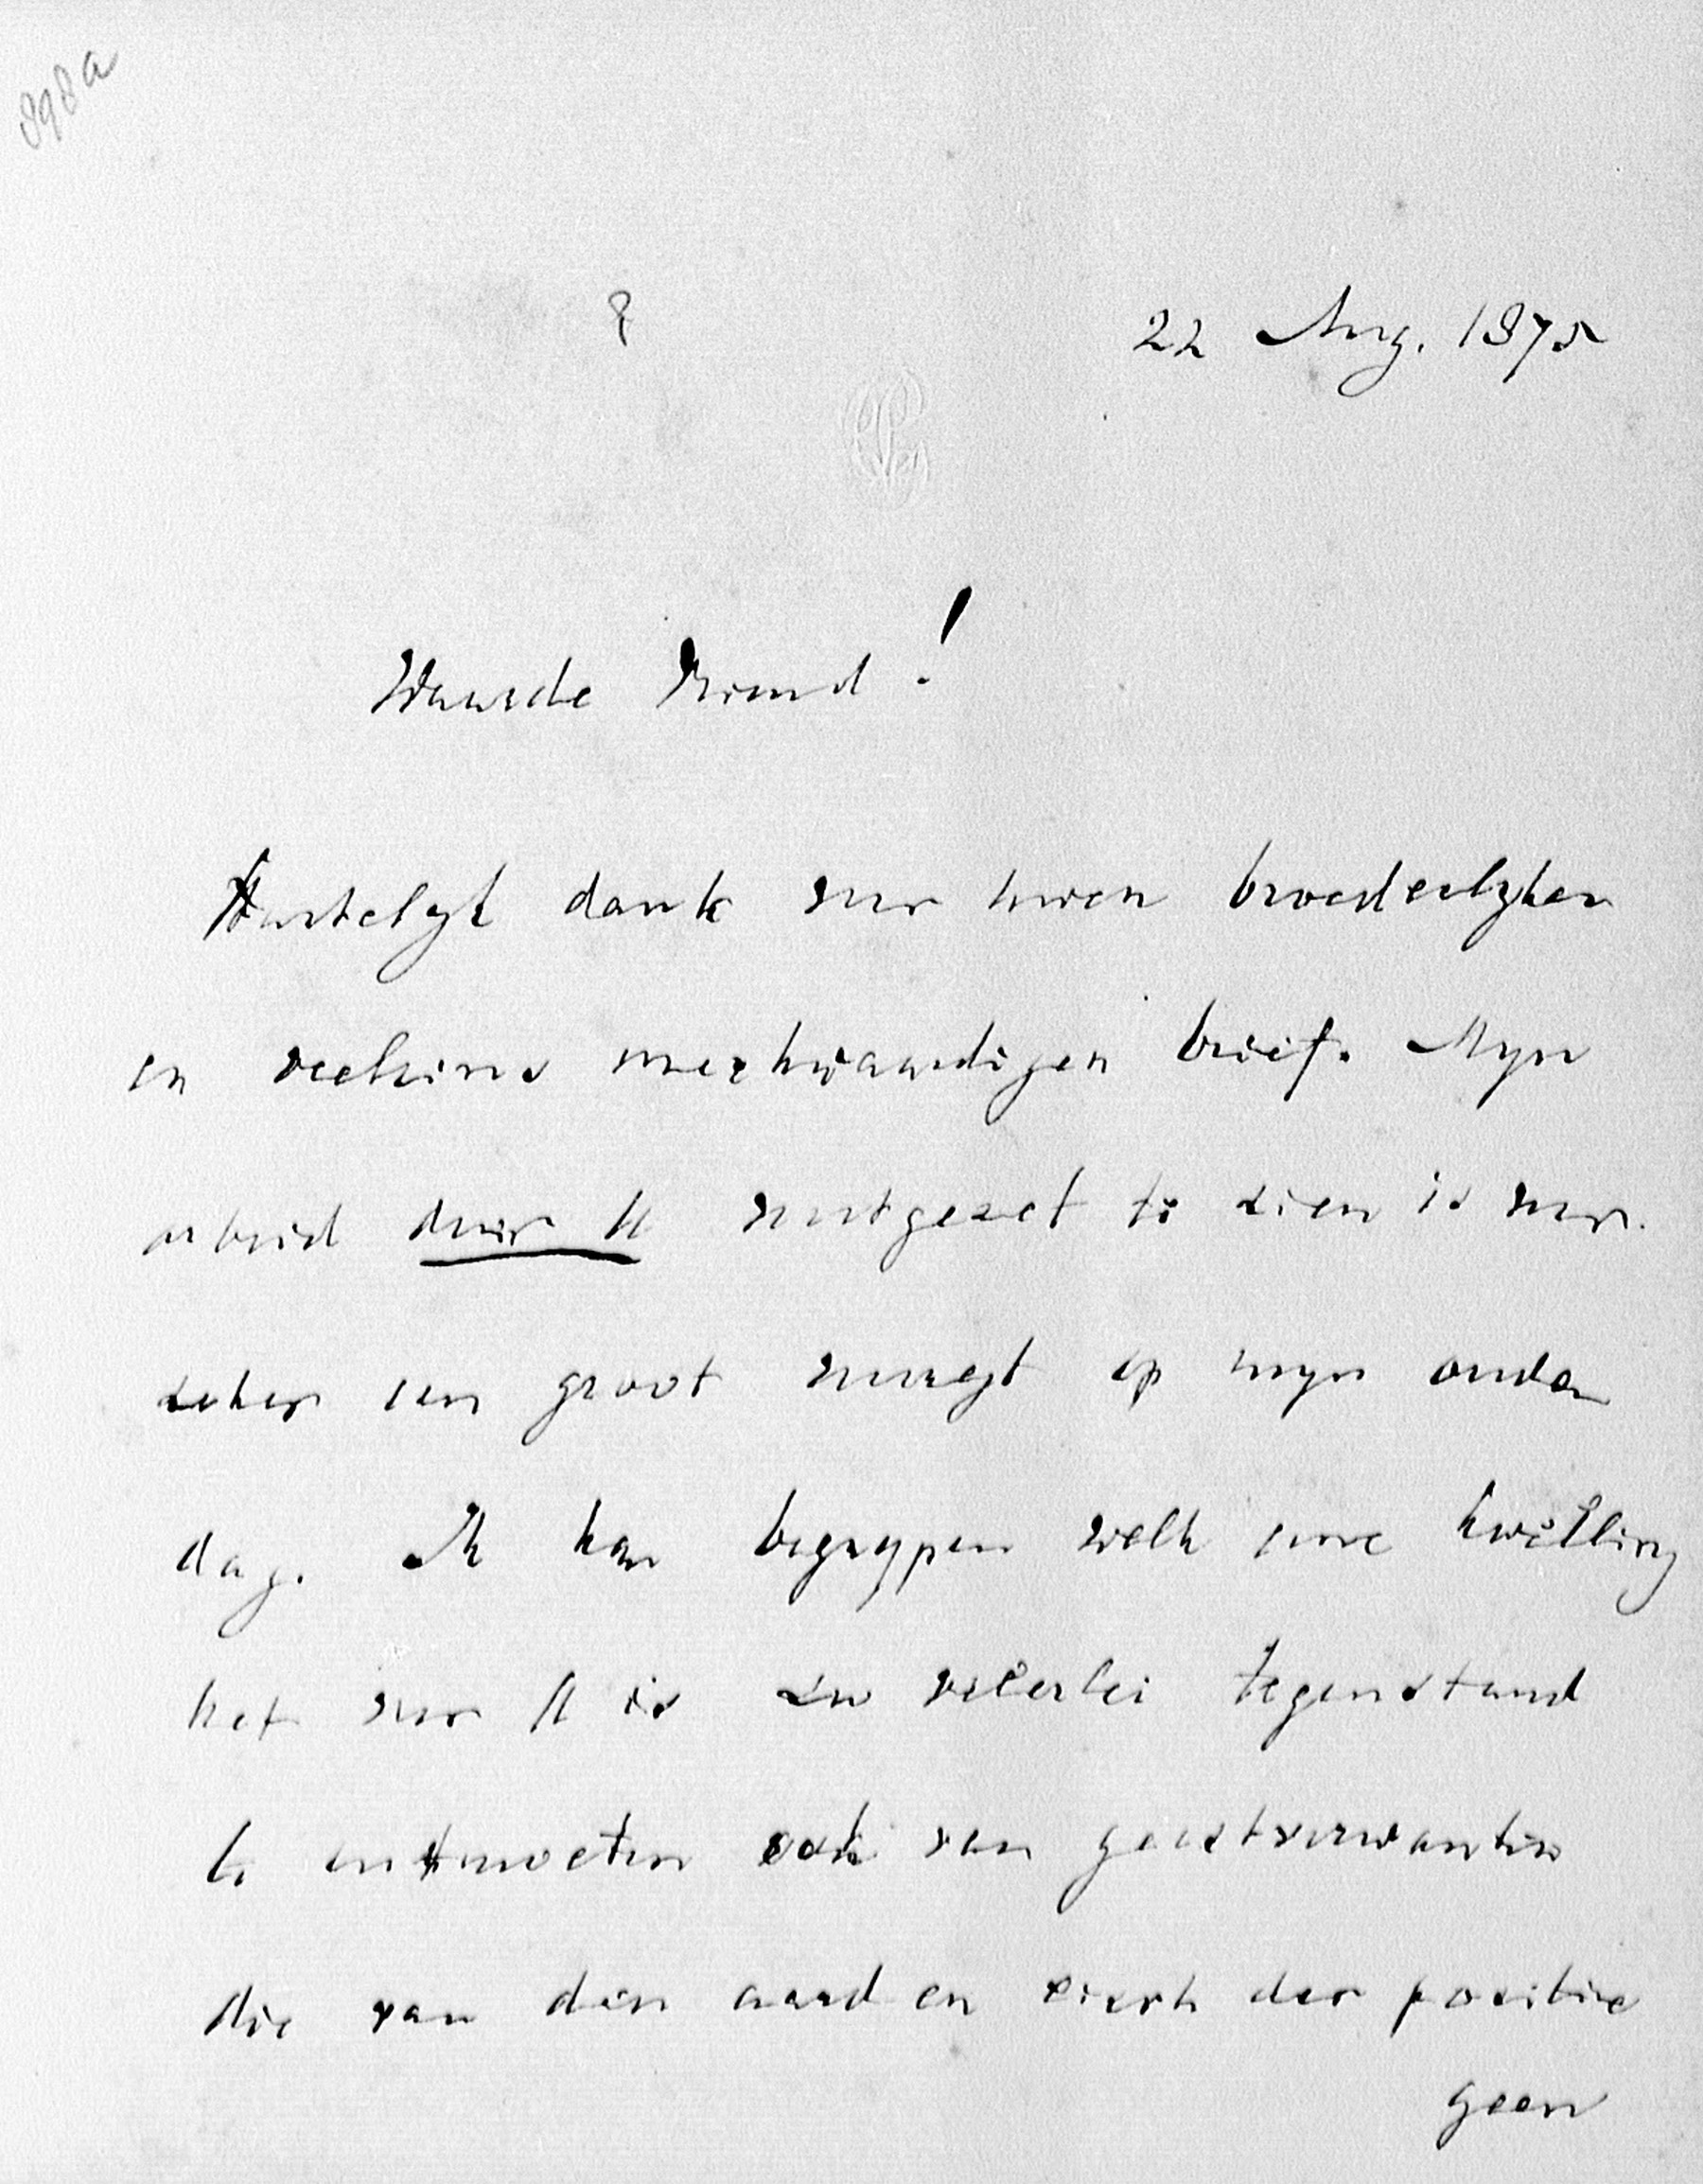 898a
22 Aug. 1875
Waarde Vriend!
Hartelijk dank voor uwen broederlijken
en veelzins merkwaardigen brief. Mijn
arbeid door U voortgezet te zien is voor-
zeker een groot voorregt op mijn ouden
dag. Ik kan begrijpen welk eene kwelling
het voor U is zo velerlei tegenstand
te ontmoeten ook van geestverwanten
die van den aard en eisch der positie
geen